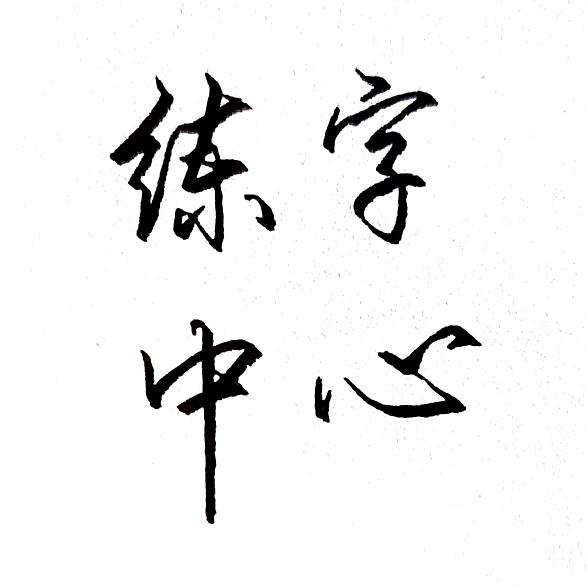 练字
中心